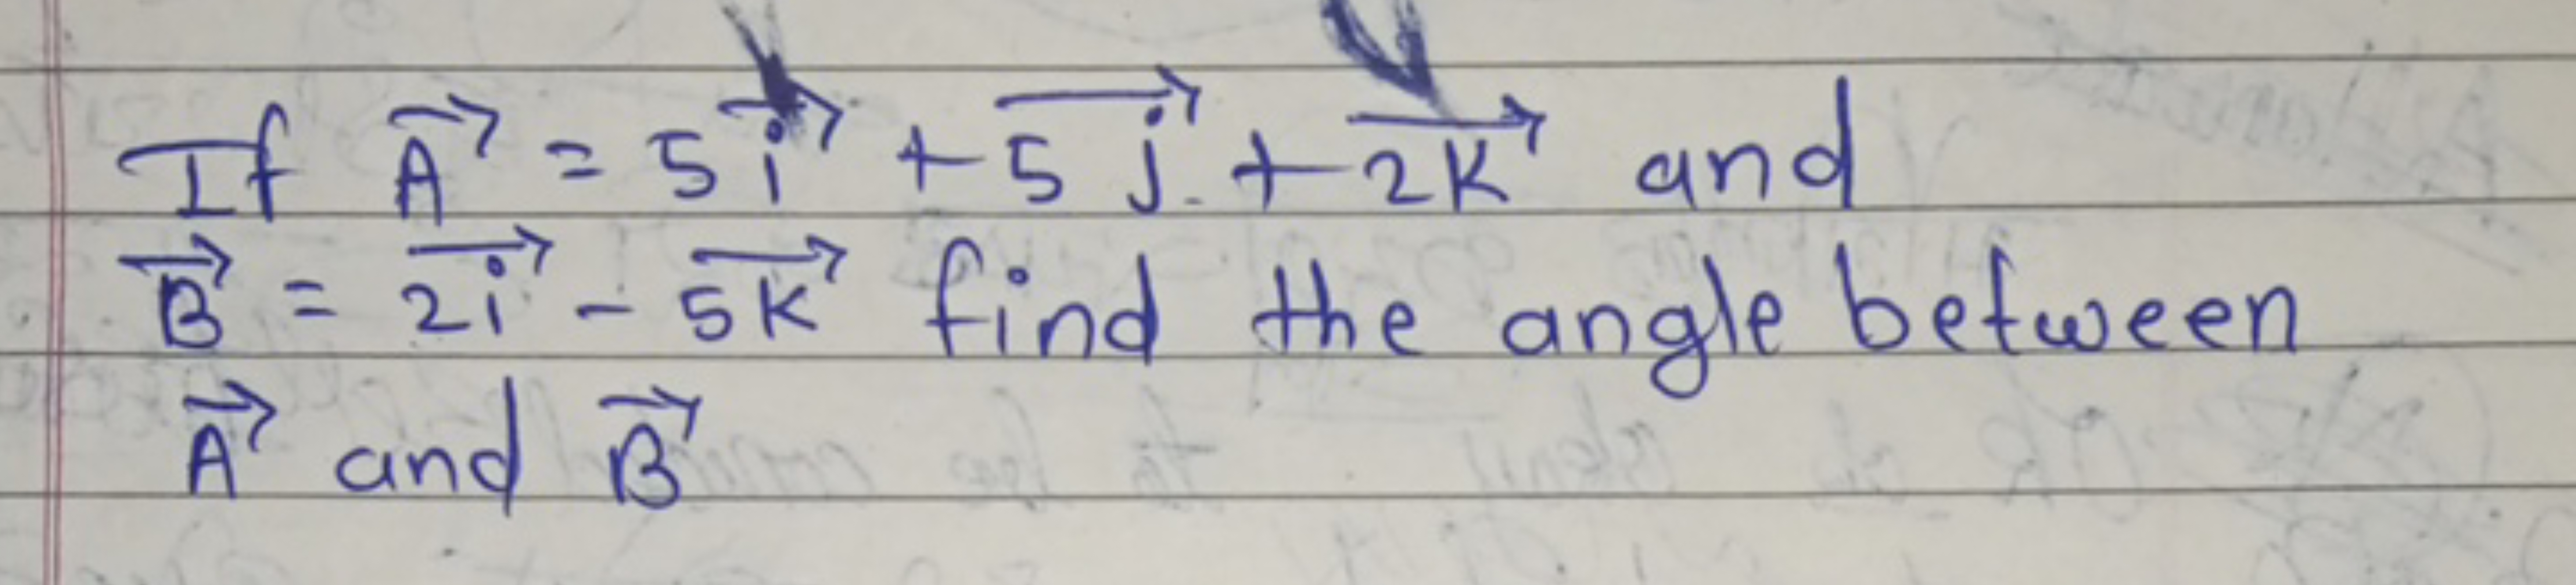 If A⃗ = 5i⃗ + 5j⃗ + 2k⃗ and
B⃗ = 2i⃗ - 5k⃗ find the angle between
A⃗ and B⃗